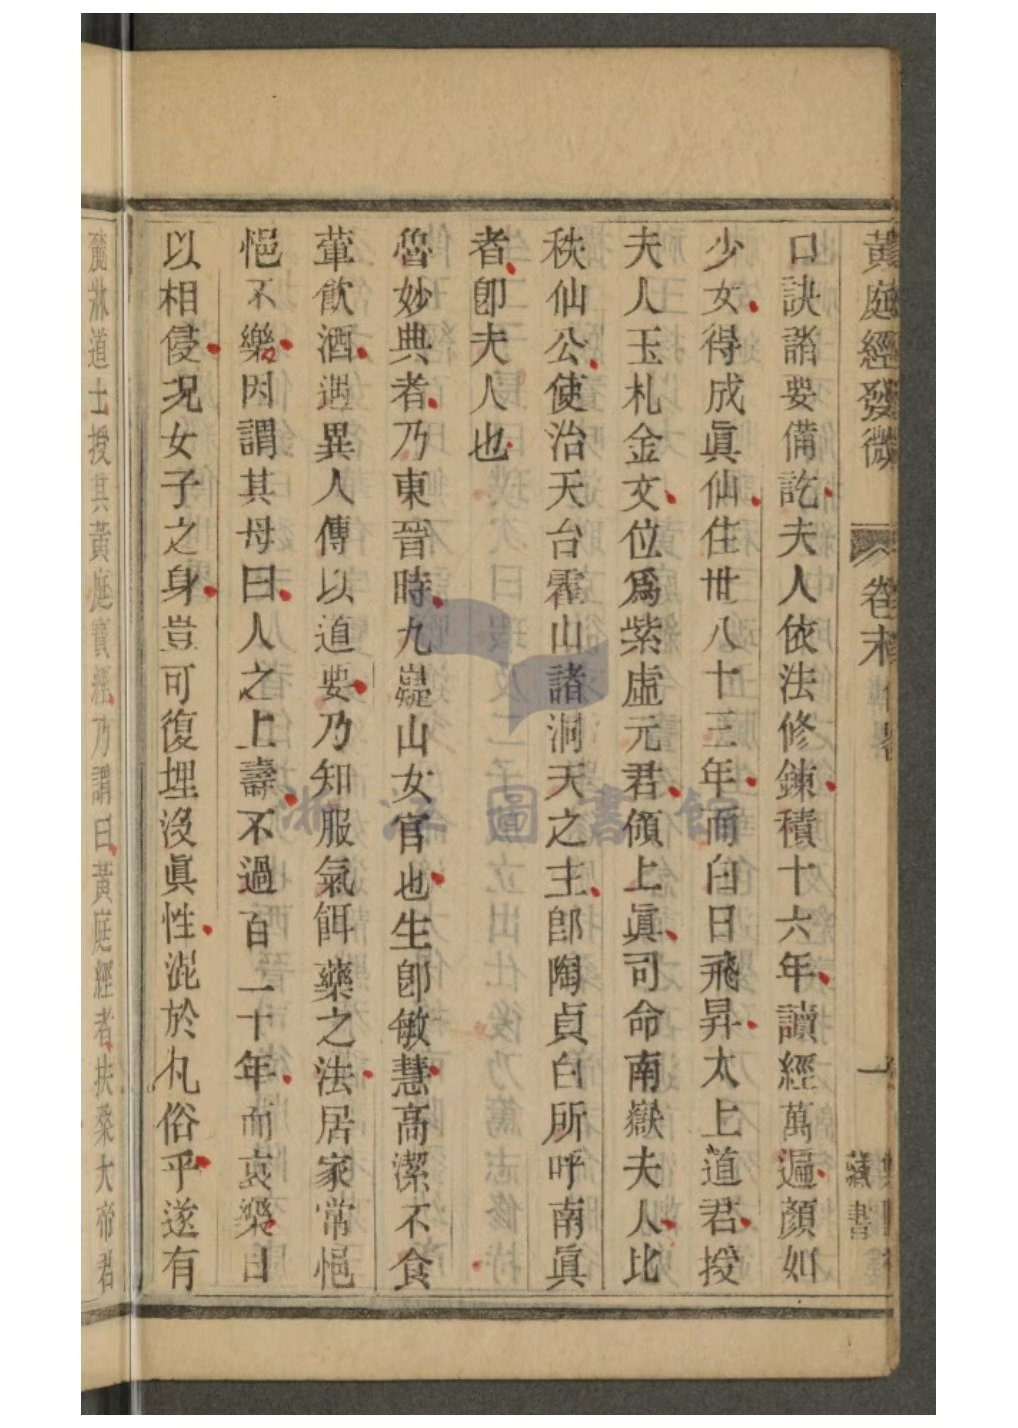 黃庭經發微 卷末 一 藏書
口訣諸要備訖夫人依法修鍊積十六年讀經萬遍顏如
少女得成眞仙住世八十三年而白日飛昇太上道君授
夫人玉札金文位爲紫虛元君領上眞司命南嶽夫人比
秩仙公使治天台霍山諸洞天之主卽陶貞白所呼南眞
者卽夫人也
魯妙典者乃東晉時九嶷山女官也生卽敏慧高潔不食
葷飮酒遇異人傳以道要乃知服氣餌藥之法居家常悒
悒不樂因謂其母曰人之上壽不過百二十年而哀樂日
以相侵况女子之身豈可復埋沒眞性混於凡俗乎遂有
麓牀道士授其黃庭寳經乃謂曰黃庭經者扶桑大帝君
浙江圖書館